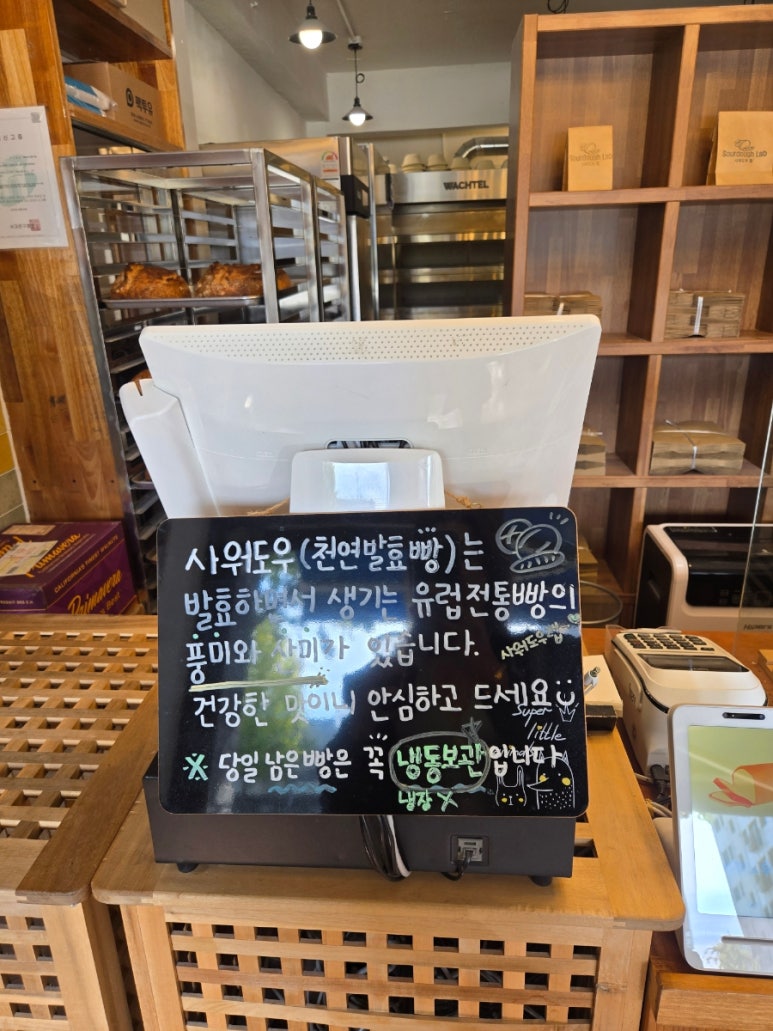 WACHTEL
Sourdough Lab
Sourdough Lab
사워도우(천연발효빵)는
발효하면서 생기는 유럽전통빵의
풍미와 산미가 있습니다.
사워도우랩
건강한 맛이니 안심하고 드세요
Super
little
※ 당일 남은빵은 꼭 냉동보관입니다
냉장 X
Primavera
CALIFORNIA'S FINEST WALNUTS
Primavera